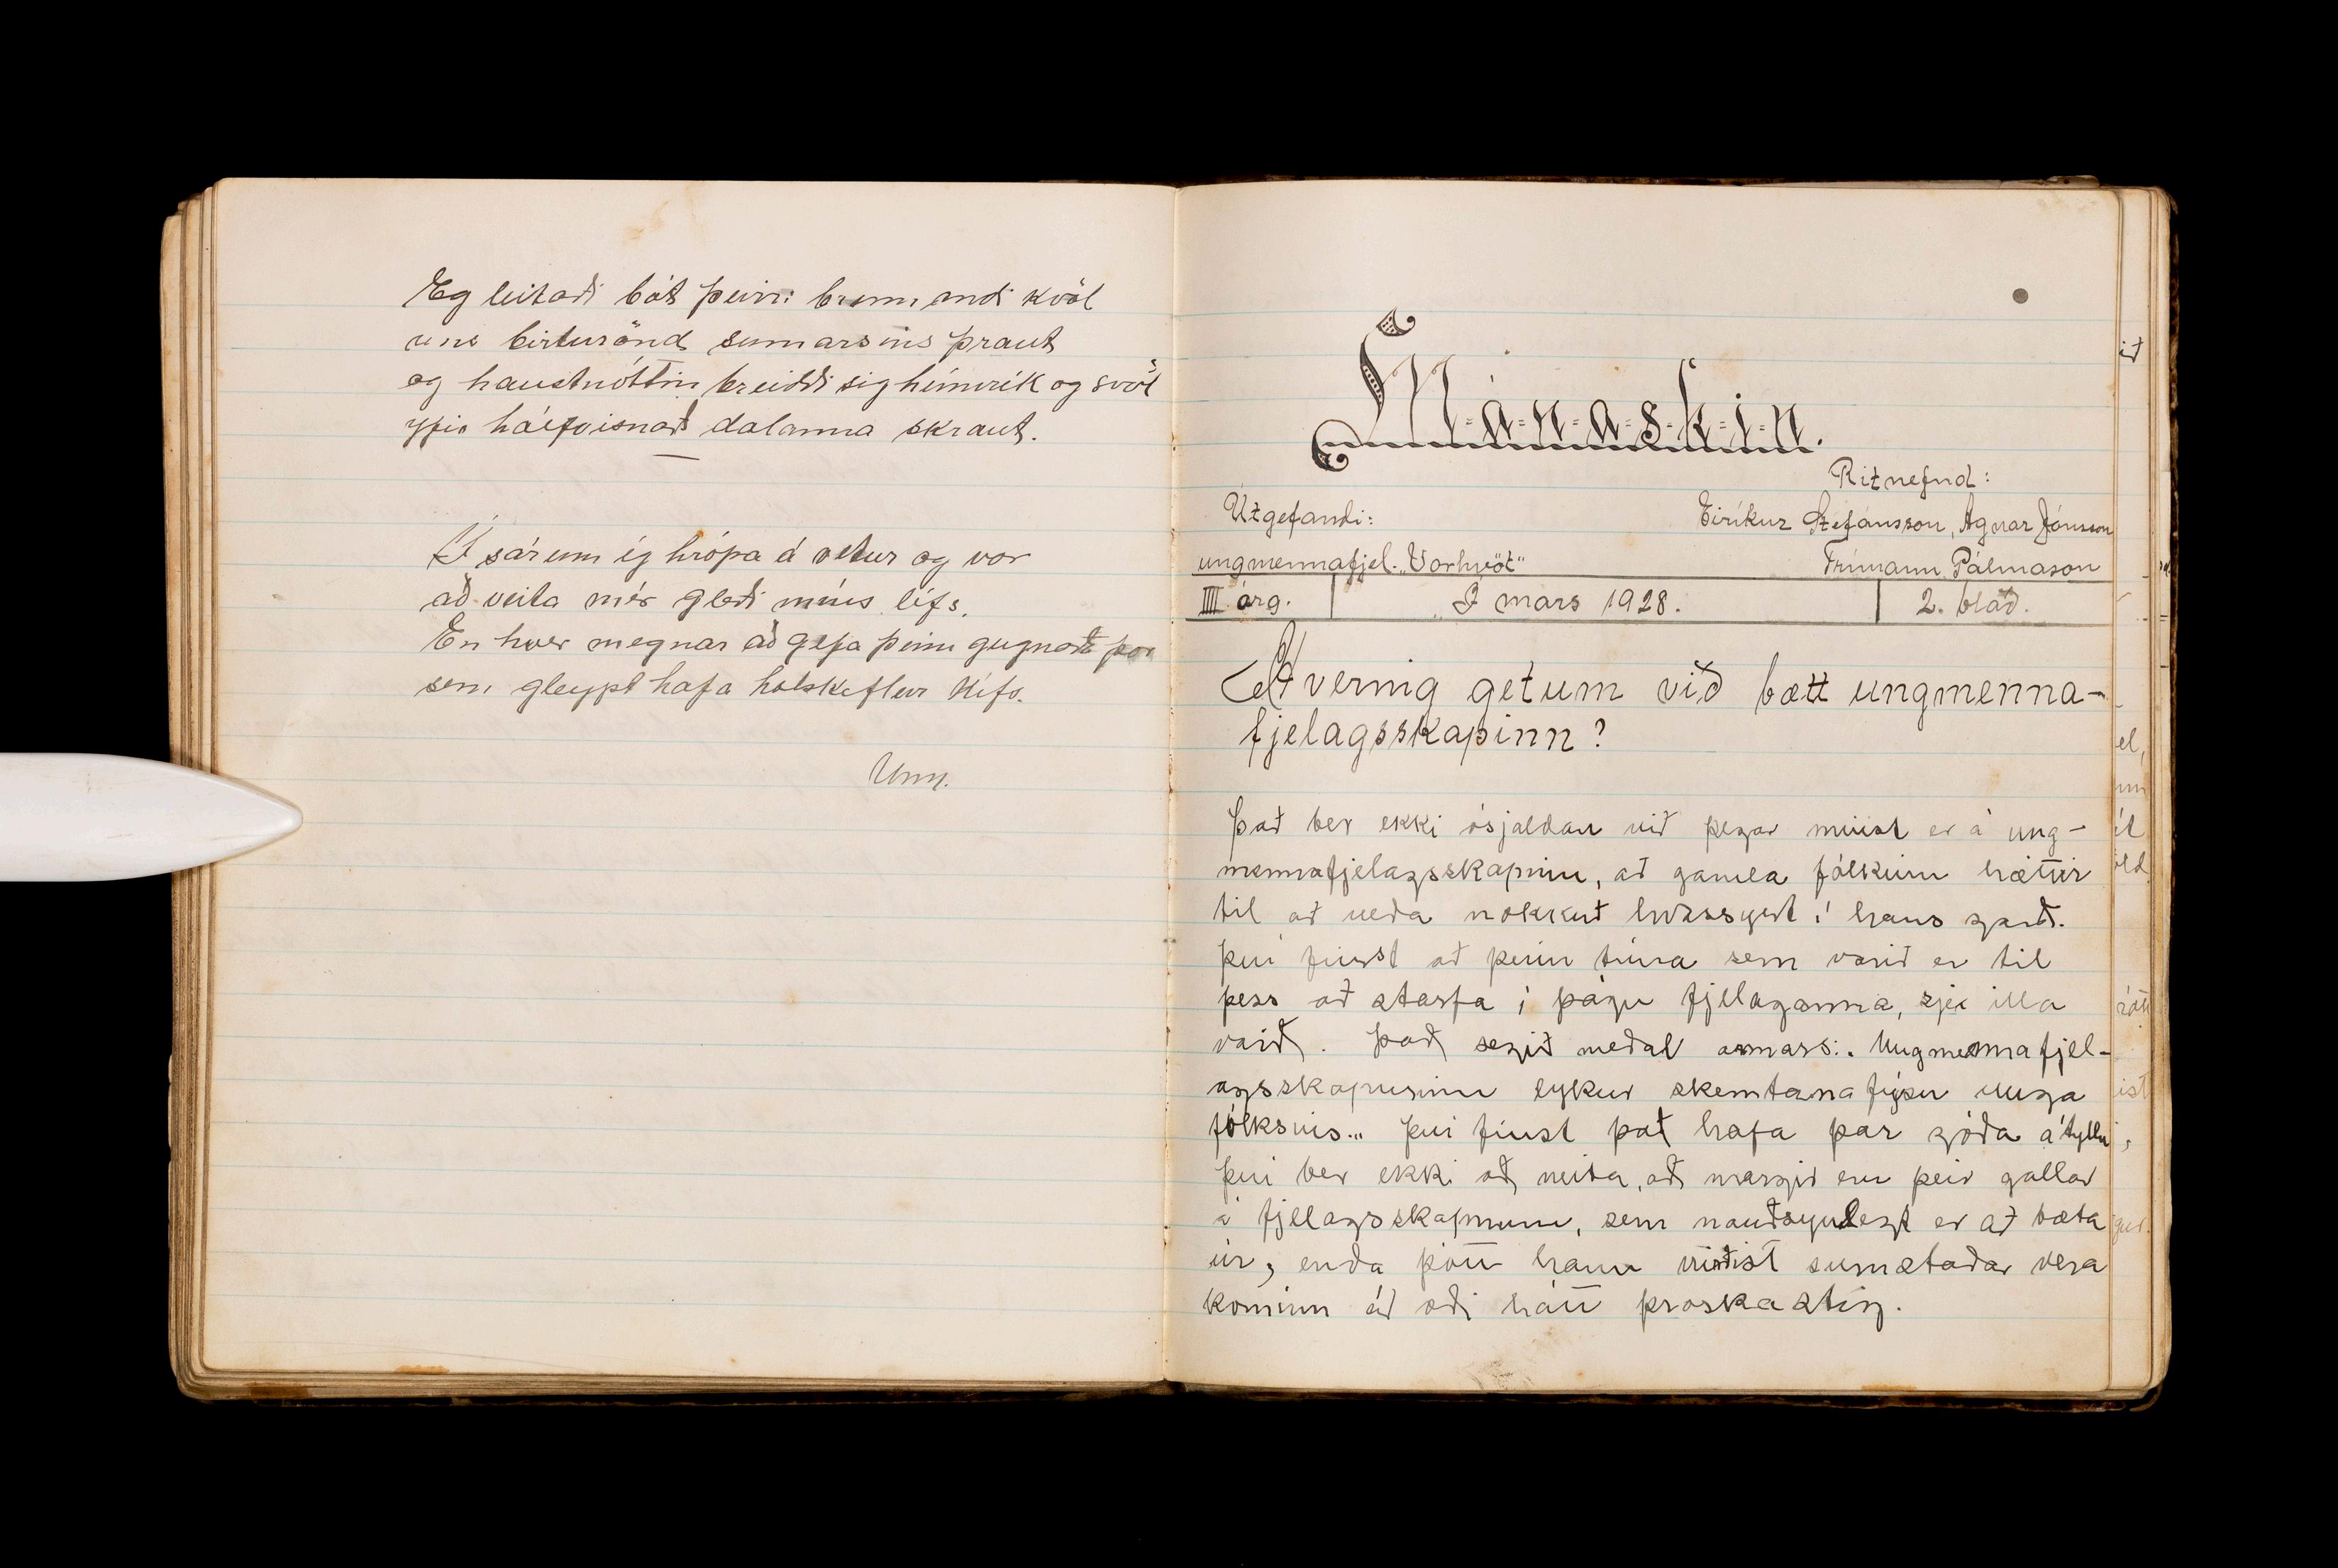 Eg leitaði bót þeirri brennandi kvöl
uns birturönd sumarsins þraut
og haustnóttin breiddi sig hímrík og svöl
yfir hálfvisnað dalanna skraut.
Í sárum ég hrópa á vetur og vor
að veita mér gleði míns lífs.
En hver megnar að gefa þeim gugnað þor
sem gleypt hafa holskeflur kífs.
Unn.
M-á-n-a-s-k-i-n.
Ritnefnd:
Útgefandi:
Eiríkur Stefánsson, Agnar Jónsson
ungmennafjel. „Vorhvöt"
Frímann Pálmason
III árg.
Í mars 1928.
2. blað.
Hvernig getum við bætt ungmenna-
fjelagsskapinn?
Það ber ekki ósjaldan við þegar minst er á ung-
mennafjelagsskapinn, að gamla fólkinu hættir
til að veða nokkuð hvassyrt í hans garð.
Því finst að þeim tíma sem varið er til
þess að starfa í þágu fjelaganna, sje illa
varið. Það segir meðal annars: „Ungmennafjel-
agsskapurinn eykur skemtanafýsn unga
fólksins." Því finst það hafa þar góða átyllu
Því ber ekki að neita, að margir eru þeir gallar
á fjelagsskapnum, sem nauðsynlegt er að bæta
úr, enda þótt hann virðist sumstaðar vera
kominn á æði hátt þroskastig.